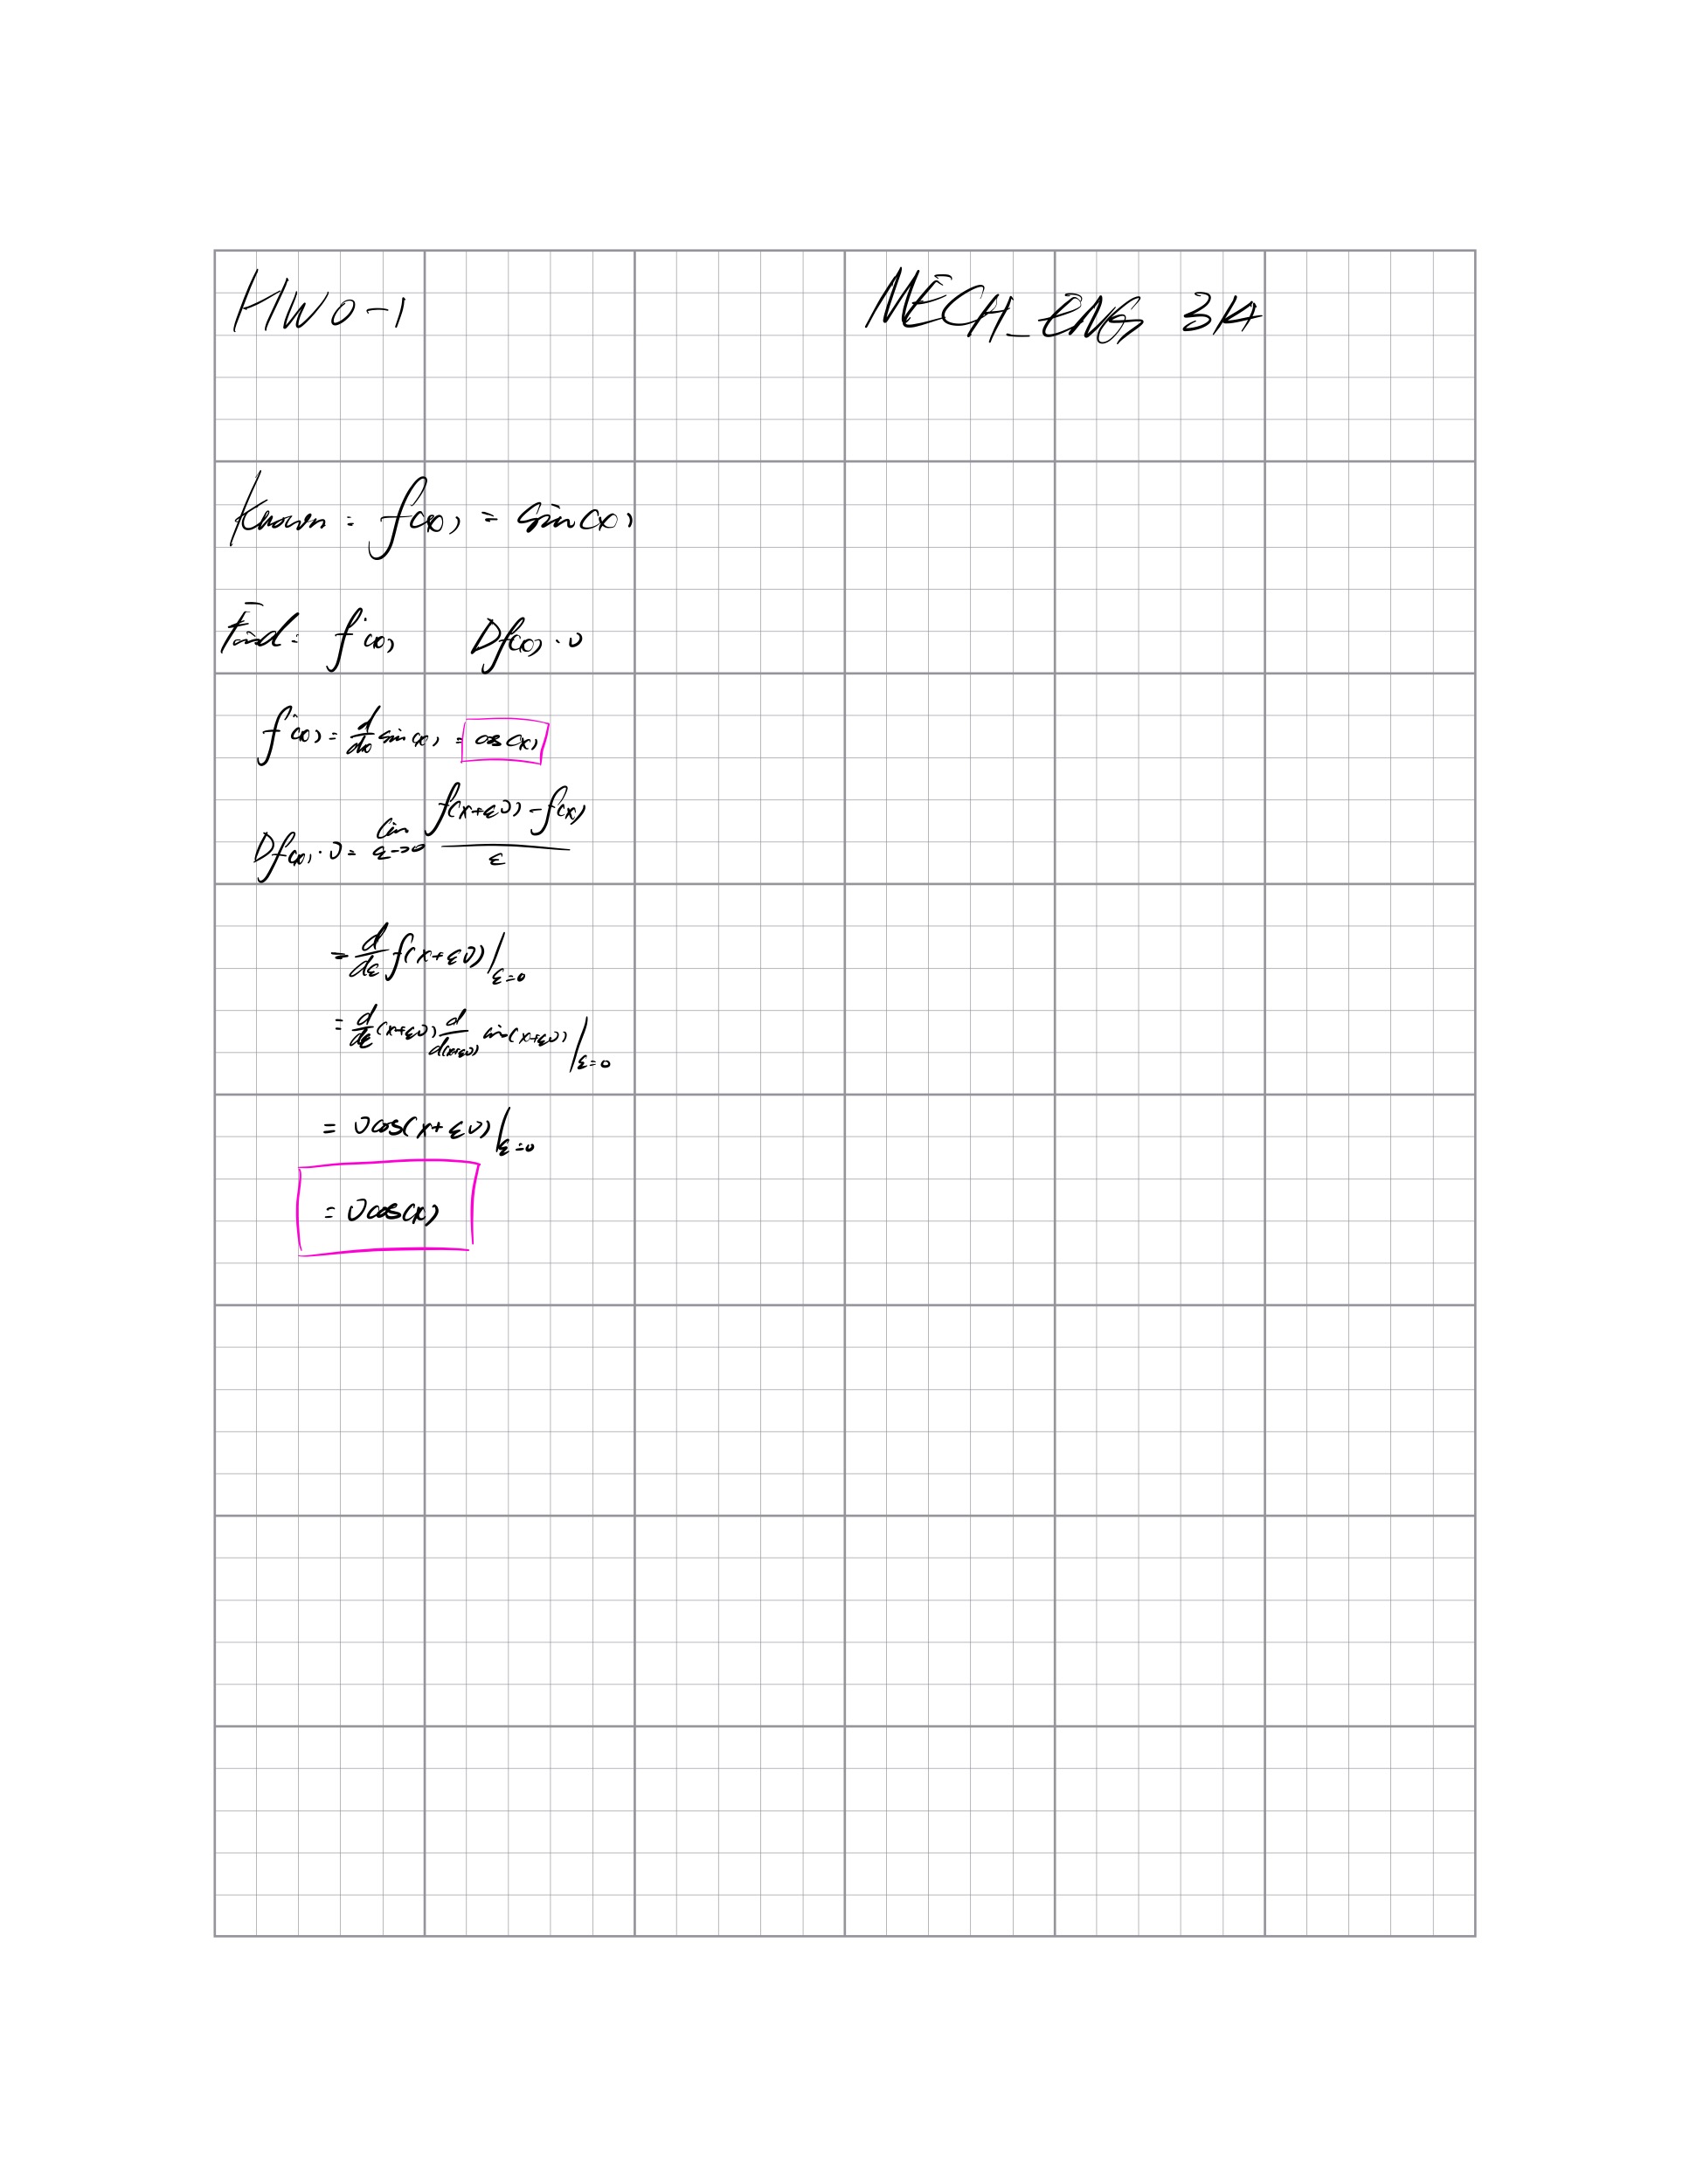 HW0-1 MECH_ENG 314
Known: f(x) = sin(x)
Find: f'(x) Df(x)·v
f'(x) = d/dx sin(x) = cos(x)
Df(x)·v = lim ε→0 (f(x+εv) - f(x))/ε
= d/dε f(x+εv)|ε=0
= d/dε (x+εv) d/d(x+εv) sin(x+εv)|ε=0
= v cos(x+εv)|ε=0
= v cos(x)